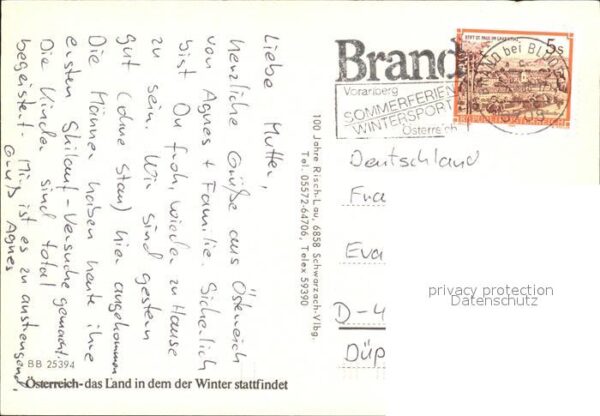 Liebe Mutter,
herzliche Grüße aus Österreich
von Agnes + Familie. Sicherlich
bist Du froh, wieder zu Hause
zu sein. Wir sind gestern
gut (ohne Stau) hier angekommen
Die Männer haben heute ihre
ersten Skilauf-Versuche gemacht.
Die Kinder sind total
begeistert. Mir ist es zu anstrengend.
Gruß Agnes
BB 25394
Österreich-das Land in dem der Winter stattfindet
100 Jahre Risch-Lau, 6858 Schwarzach-Vlbg.
Tel. 05572-64706, Telex 59390
Brand
Vorarlberg
SOMMERFERIEN
WINTERSPORT
Österreich
BRAND bei BLUD
STIFT ST. PAUL IM LAVANTTAL
5s
REPUBLIK ÖSTERREICH
Deutschland
Fra
Eva
D-4
Düp
privacy protection
Datenschutz